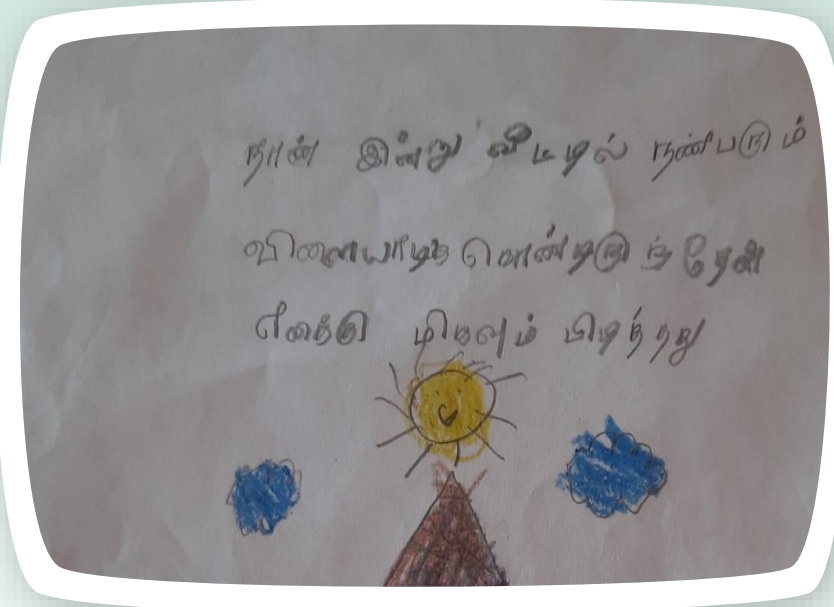 நான் இன்று வீட்டில் நண்பரும்
விளையாடிக் கொண்டிருந்தேன்
எனக்கு மிகவும் பிடித்தது